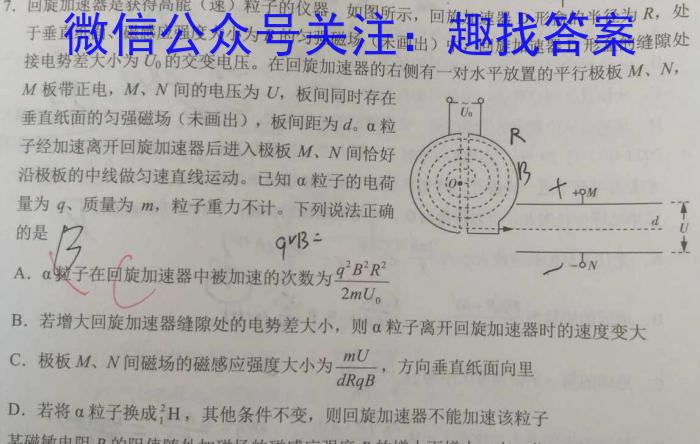 7. 回旋加速器是获得高能（速）粒子的仪器，如图所示，回旋加速器 D 形盒的半径为 R，处
于垂直 磁感应强度大小为 的匀强磁场 未画出） 回旋加速器 形 的缝隙处
微信公众号关注：趣找答案
接电势差大小为 U₀ 的交变电压。在回旋加速器的右侧有一对水平放置的平行极板 M、N，
M 板带正电，M、N 间的电压为 U，板间同时存在
垂直纸面的匀强磁场（未画出），板间距为 d。α 粒
子经加速离开回旋加速器后进入极板 M、N 间恰好
沿极板的中线做匀速直线运动。已知 α 粒子的电荷
量为 q、质量为 m，粒子重力不计。下列说法正确
的是
B
C
qvB=
U₀
R
B
O
+
+M
d
U
−
−N
A. α 粒子在回旋加速器中被加速的次数为 q²B²R²/2mU₀
B. 若增大回旋加速器缝隙处的电势差大小，则 α 粒子离开回旋加速器时的速度变大
C. 极板 M、N 间磁场的磁感应强度大小为 mU/dRqB，方向垂直纸面向里
D. 若将 α 粒子换成 ²₁H，其他条件不变，则回旋加速器不能加速该粒子
某磁敏电阻 的阻值随外加磁场的磁感应强度 B 的增大而增大